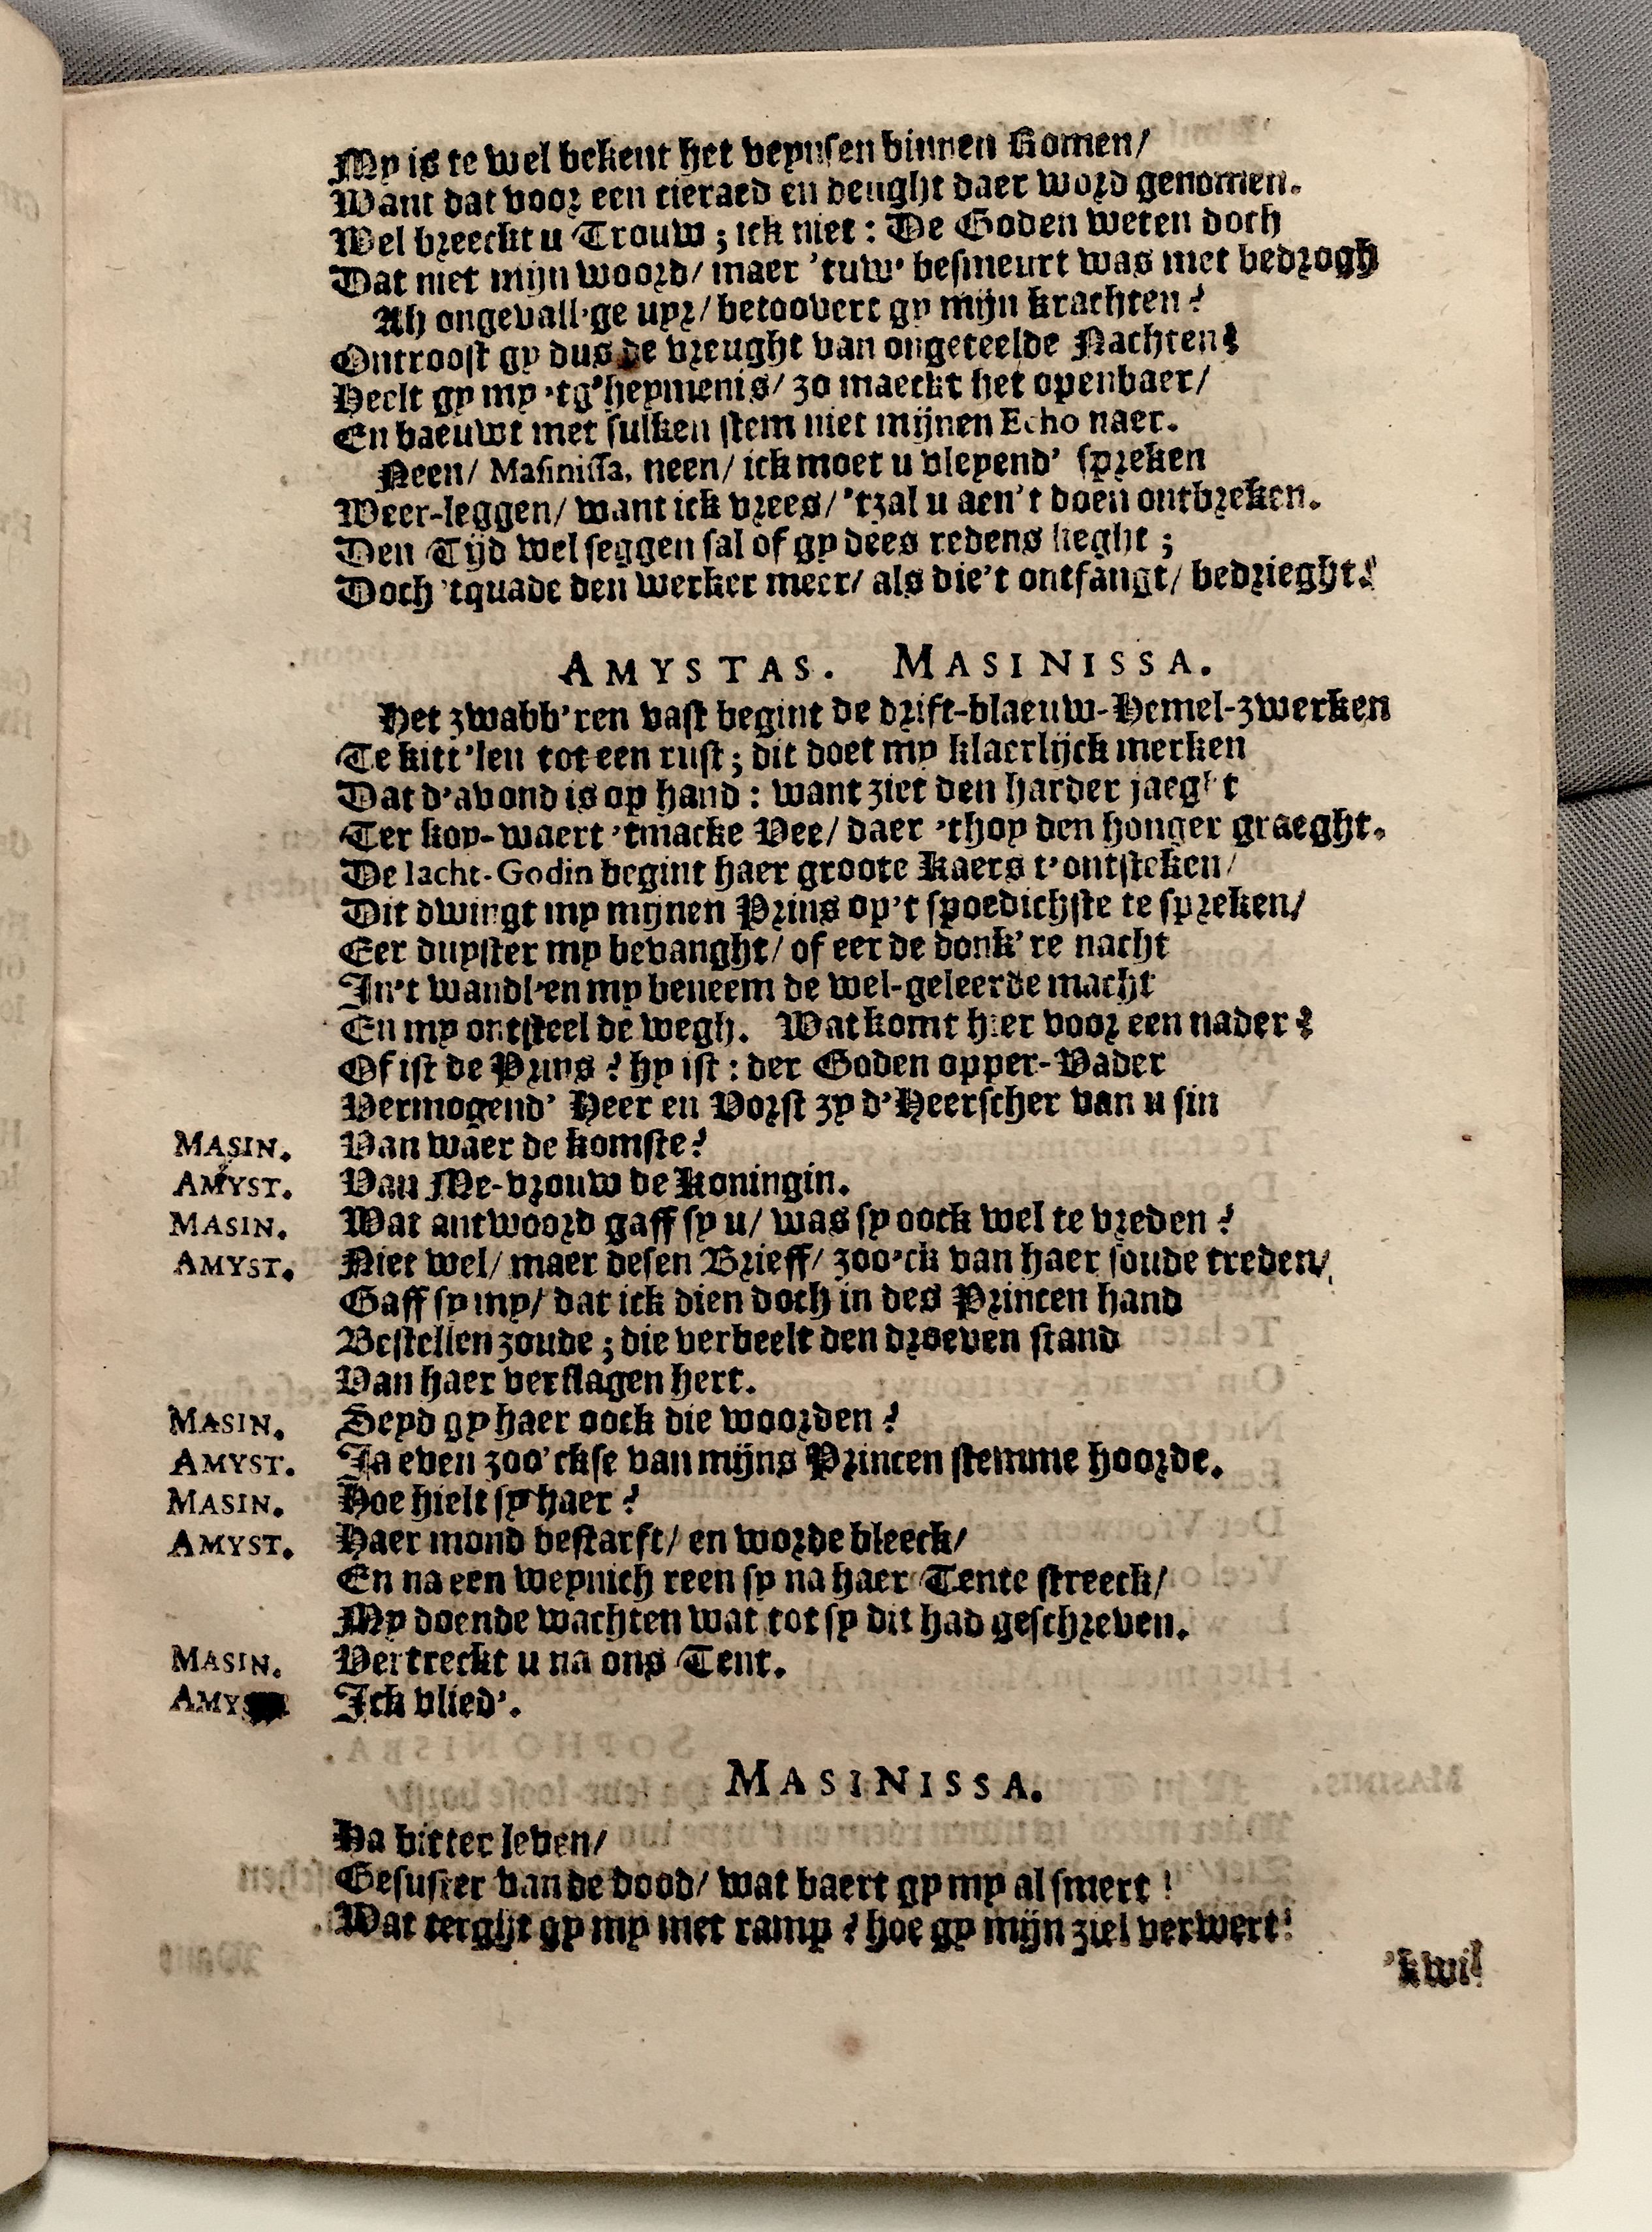 My is te wel bekent het veynsen binnen Romen/
Want dat voor een cieraed en deught daer word genomen.
Wel breeckt u Trouw; ick niet: De Goden weten doch
Dat niet mijn woord/ maer 'tuw' besmeurt was met bedrogh
Ah ongevall'ge uyr/ betoovert gy mijn krachten?
Ontroost gy dus de vreught van ongeteelde Nachten?
Heelt gy my 'tg'heymenis/ zo maeckt het openbaer/
En baeuwt met sulken stem niet mijnen Echo naer.
Neen/ Masinissa, neen/ ick moet u vleyend' spreken
Weer-leggen/ want ick vrees/ 'tzal u aen't doen ontbreken.
Den Tijd wel seggen sal of gy dees redens lieght;
Doch 'tquade den werker meer/ als die't ontfangt/ bedrieght!
AMYSTAS. MASINISSA.
Het zwabb'ren vast begint de drift-blaeuw-Hemel-zwerken
Te kitt'len tot een rust; dit doet my klaerlijck merken
Dat d'avond is op hand: want ziet den harder jaeght
Ter koy-waert 'tmacke Vee/ daer 'thoy den honger graeght.
De lacht-Godin begint haer groote Kaers t'ontsteken/
Dit dwingt my mijnen Prins op't spoedichste te spreken/
Eer duyster my bevanght/ of eer de donk're nacht
In't wandl'en my beneem de wel-geleerde macht
En my ontsteel de wegh. Wat komt hier voor een nader?
Of ist de Prins? hy ist: der Goden opper-Vader
Vermogend' Heer en Vorst zy d'Heerscher van u sin
MASIN. Van waer de komste?
AMYST. Van Me-vrouw de Koningin.
MASIN. Wat antwoord gaff sy u/ was sy oock wel te vreden?
AMYST. Niet wel/ maer desen Brieff/ zoo'ck van haer soude treden/
Gaff sy my/ dat ick dien doch in des Princen hand
Bestellen zoude; die verbeelt den droeven stand
Van haer verslagen hert.
MASIN. Seyd gy haer oock die woorden?
AMYST. Ja even zoo'ckse van mijns Princen stemme hoorde.
MASIN. Hoe hielt sy haer?
AMYST. Haer mond bestarft/ en worde bleeck/
En na een weynich reen sy na haer Tente streeck/
My doende wachten wat tot sy dit had geschreven.
MASIN. Vertreckt u na ons Tent.
AMY Ick vlied'.
MASINISSA.
Ha bitter leven/
Gesuster van de dood/ wat baert gy my al smert!
Wat terght gy my met ramp? hoe gy mijn ziel verwert!
'kwil